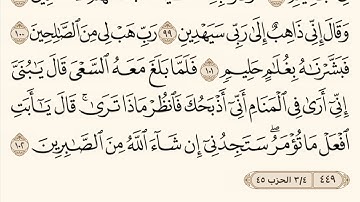 وَقَالَ إِنِّي ذَاهِبٌ إِلَىٰ رَبِّي سَيَهْدِينِ ٩٩ رَبِّ هَبْ لِي مِنَ الصَّالِحِينَ ١٠٠
فَبَشَّرْنَاهُ بِغُلَامٍ حَلِيمٍ ١٠١ فَلَمَّا بَلَغَ مَعَهُ السَّعْيَ قَالَ يَا بُنَيَّ
إِنِّي أَرَىٰ فِي الْمَنَامِ أَنِّي أَذْبَحُكَ فَانْظُرْ مَاذَا تَرَىٰ ۚ قَالَ يَا أَبَتِ
افْعَلْ مَا تُؤْمَرُ ۖ سَتَجِدُنِي إِنْ شَاءَ اللَّهُ مِنَ الصَّابِرِينَ ١٠٢
٤٤٩ ٣/٤ الحزب ٤٥